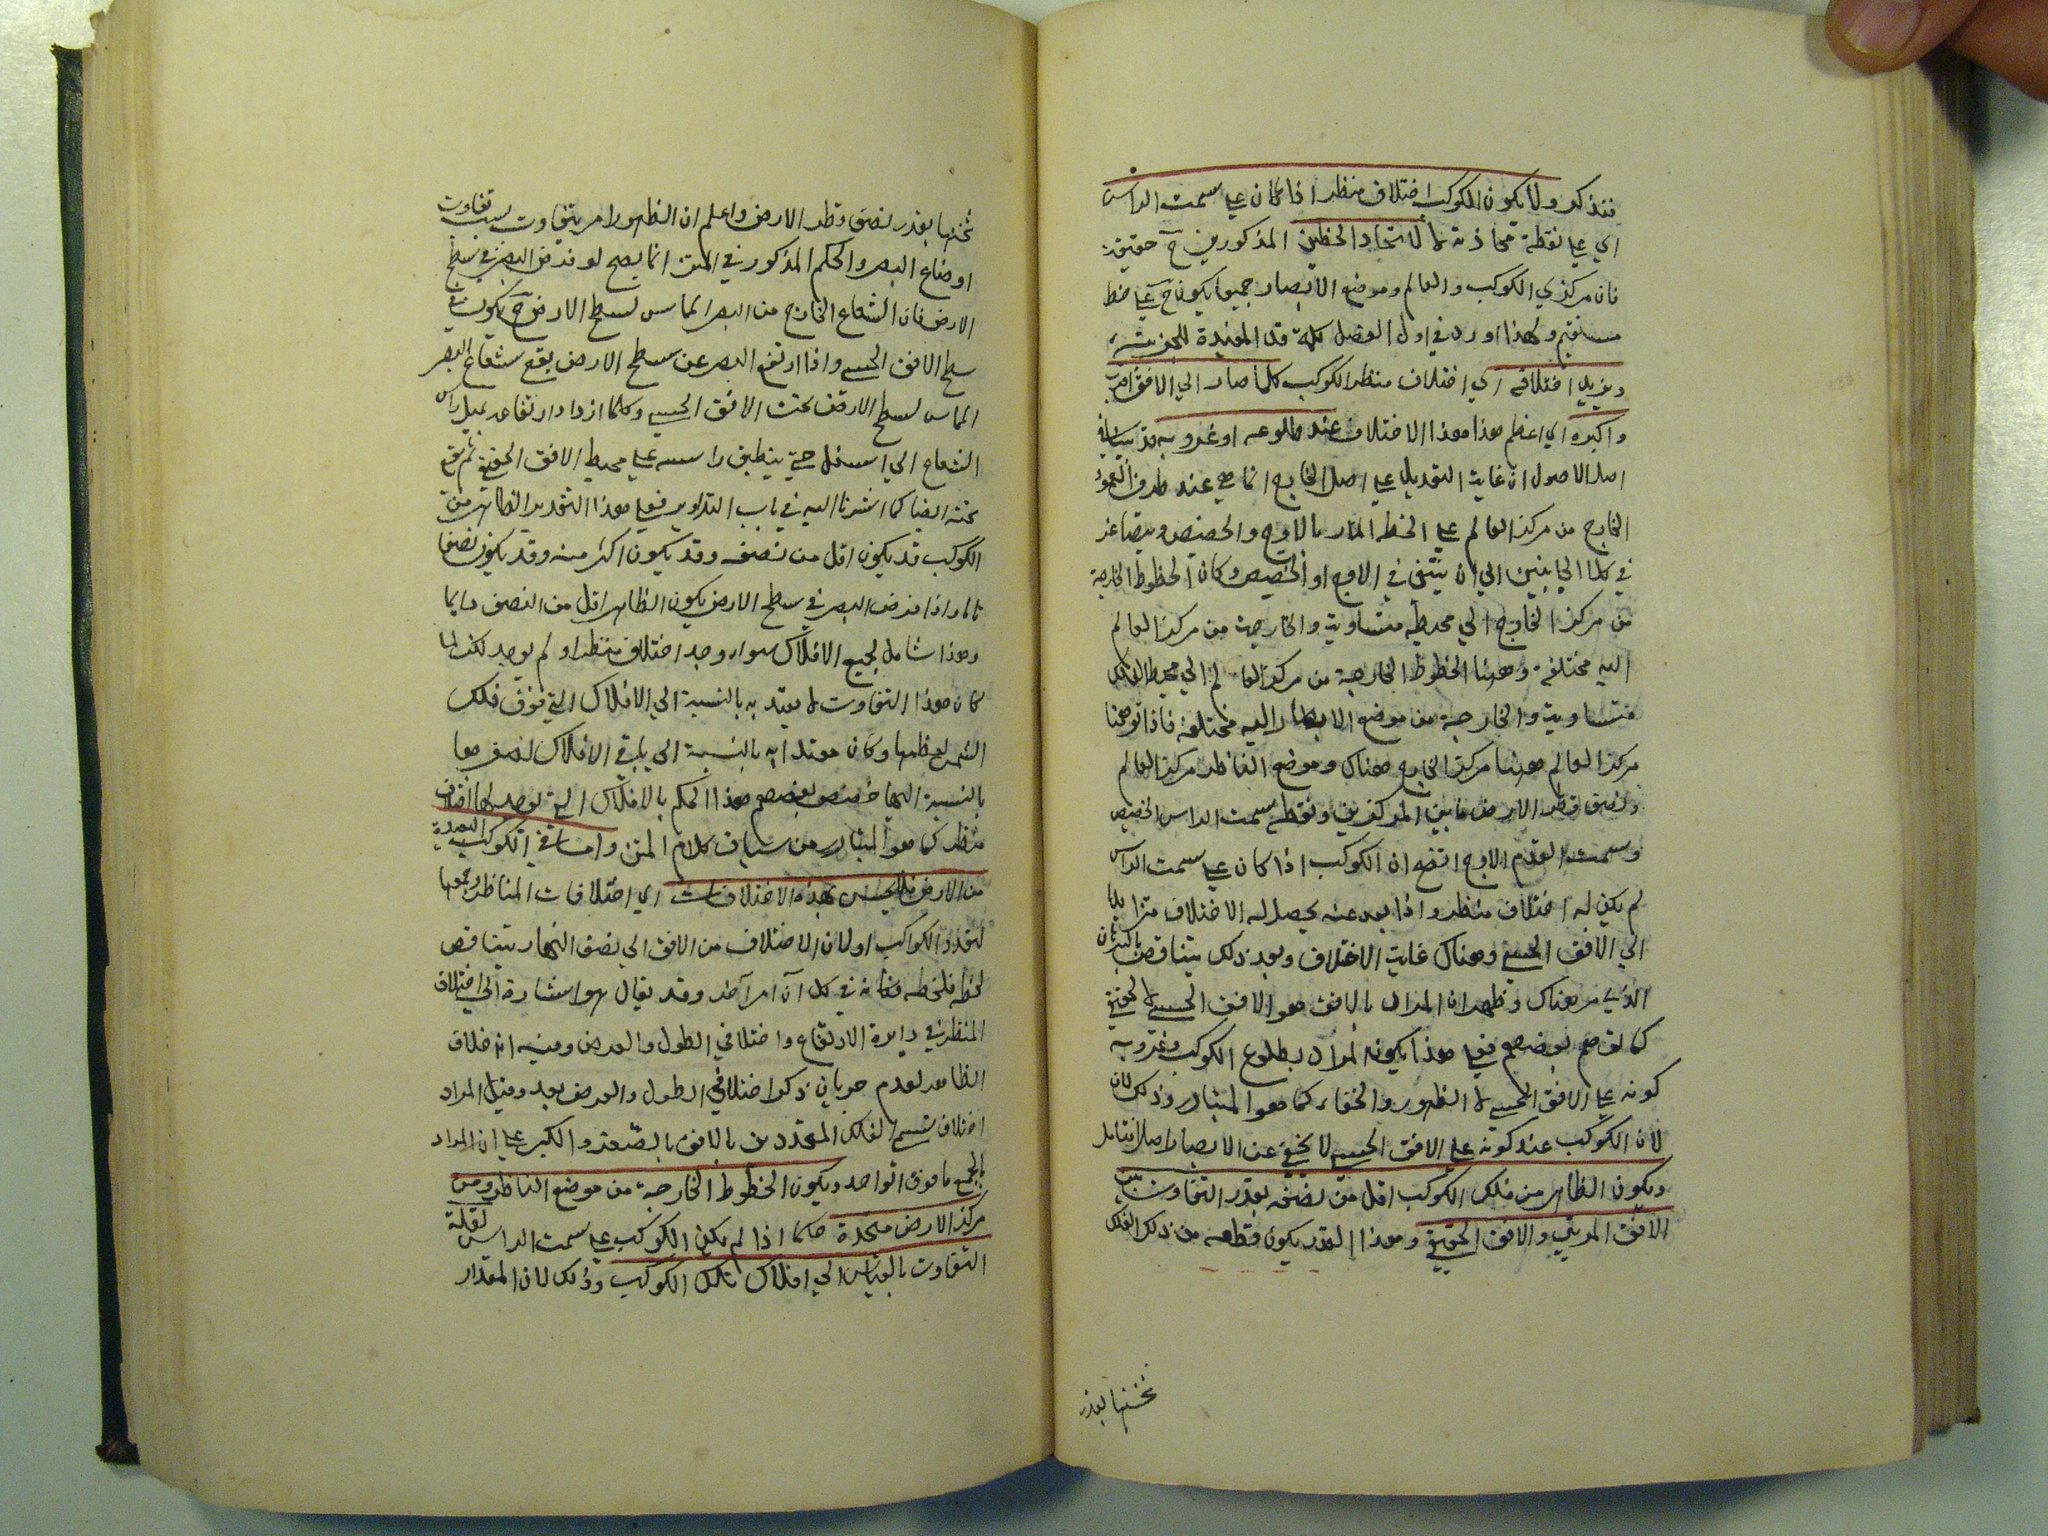 فتذكر ولا يكون للكوكب اختلاف منظر اذا كان على سمت الراس
اي على نقطة محاذية لها لاتحاد الخطين المذكورين ح حقيقة
فان مركزي الكوكب والعالم وموضع الابصار جميعا يكون ح على خط
مستقيم ولهذا اورد في اول الفصل كلمة قد المفيدة للجزئية
ويزيد اختلافه اي اختلاف منظر الكوكب كلما صار الي الافق اقرب
واكبره اي اعظم هذا الاختلاف عند طلوعه او غروبه قد
اصل الاصول ان غاية التعديل على اصل الخارج انما هي عند طرف العمود
الخارج من مركز العالم على الخط المار بالاوج والحضيض ويتصاغر
في كلا الجانبين الي ان ينتفي في الاوج او الحضيض وكان الخطوط الخارجة
من مركز الخارج الي محيطه متساوية والخارجة من مركز العالم
اليه مختلفة وههنا الخطوط الخارجة من مركز العالم الي محيط الفلك
متساوية والخارجة من موضع الابصار اليه مختلفة فاذا توهمنا
مركز العالم ههنا مركز الخارج هناك وموضع الناظر مركز العالم
ونصف قطر الارض ما بين المركزين ونقطة سمت الراس الحضيض
وسمت القدم الاوج اتضح ان الكوكب اذا كان على سمت الراس
لم يكن له اختلاف منظر واذا بعد عنه يحصل له الاختلاف متزايدا
الي الافق الحسي وهناك غاية الاختلاف وبعد ذلك يتناقص
من هناك وظهر ان المراد بالافق هو الافق الحسي لا الحقيقي
كما توهم بعضهم فعلى هذا يكون المراد بطلوع الكوكب وغروبه
كونه على الافق الحسي لا الظهور والخفاء كما هو المتبادر وذلك
لان الكوكب عند كونه على الافق الحسي لا يخفى عن الابصار اصلا فتامل
ويكون الظاهر من فلك الكوكب اقل من نصفه بقدر التفاوت بين
الافق المرئي والافق الحقيقي وهذا القدر يكون قطعة من ذلك الفلك
ثخنها بقدر
ثخنها بقدر نصف قطر الارض واعلم ان الظهور امر يتفاوت بسبب تفاوت
اوضاع البصر والحكم المذكور في المتن انما يصح لو فرض البصر في سطح
الارض فان الشعاع الخارج من البصر المماس لسطح الارض ح يكون في
سطح الافق الحسي واذا ارتفع البصر عن سطح الارض يقع شعاع البصر
المماس لسطح الارض تحت الافق الحسي وكلما ازداد ارتفاعه يميل راس
الشعاع الي اسفل حتى ينطبق راسه على محيط الافق الحقيقي ثم يقع
تحته ايضا كما اشرنا اليه في باب الدواير فعلى هذا التقدير الظاهر من
الكوكب قد يكون اقل من نصفه وقد يكون اكثر منه وقد يكون نصفا
تاما واذا فرض البصر في سطح الارض يكون الظاهر اقل من النصف دايما
وهذا شامل لجميع الافلاك سواء وجد اختلاف منظر او لم يوجد لكن لما
كان هذا التفاوت لا يعتد به بالنسبة الي الافلاك التي فوق فلك
الشمس لعظمها وكان معتدا به بالنسبة الي باقي الافلاك لصغرها
بالنسبة اليها خصص بعضهم هذا الحكم بالافلاك التي يوجد لها اختلاف
منظر كما هو المتبادر من سياق كلام المتن واما في الكواكب البعيدة
من الارض فلا يحس بهذه الاختلافات اي اختلافات المناظر وجمعها
لتعدد الكواكب او لان الاختلاف من الافق الي نصف النهار يتناقص
لحظة فلحظة فكانه في كل آن امر آخر وقد يقال هو اشارة الي اختلاف
المنظر في دايرة الارتفاع واختلافي الطول والعرض وفيه انه خلاف
الظاهر لعدم جريان ذكر اختلافي الطول والعرض بعد وقيل المراد
اختلاف قسمي الفلك المتحددين بالافق بالصغر والكبر على ان المراد
بالجمع ما فوق الواحد ويكون الخطوط الخارجة من موضع الناظر ومن
مركز الارض متحدة حكما اذا لم يكن الكوكب على سمت الراس لقلة
التفاوت بالقياس الي افلاك تلك الكواكب وذلك لان المقدار